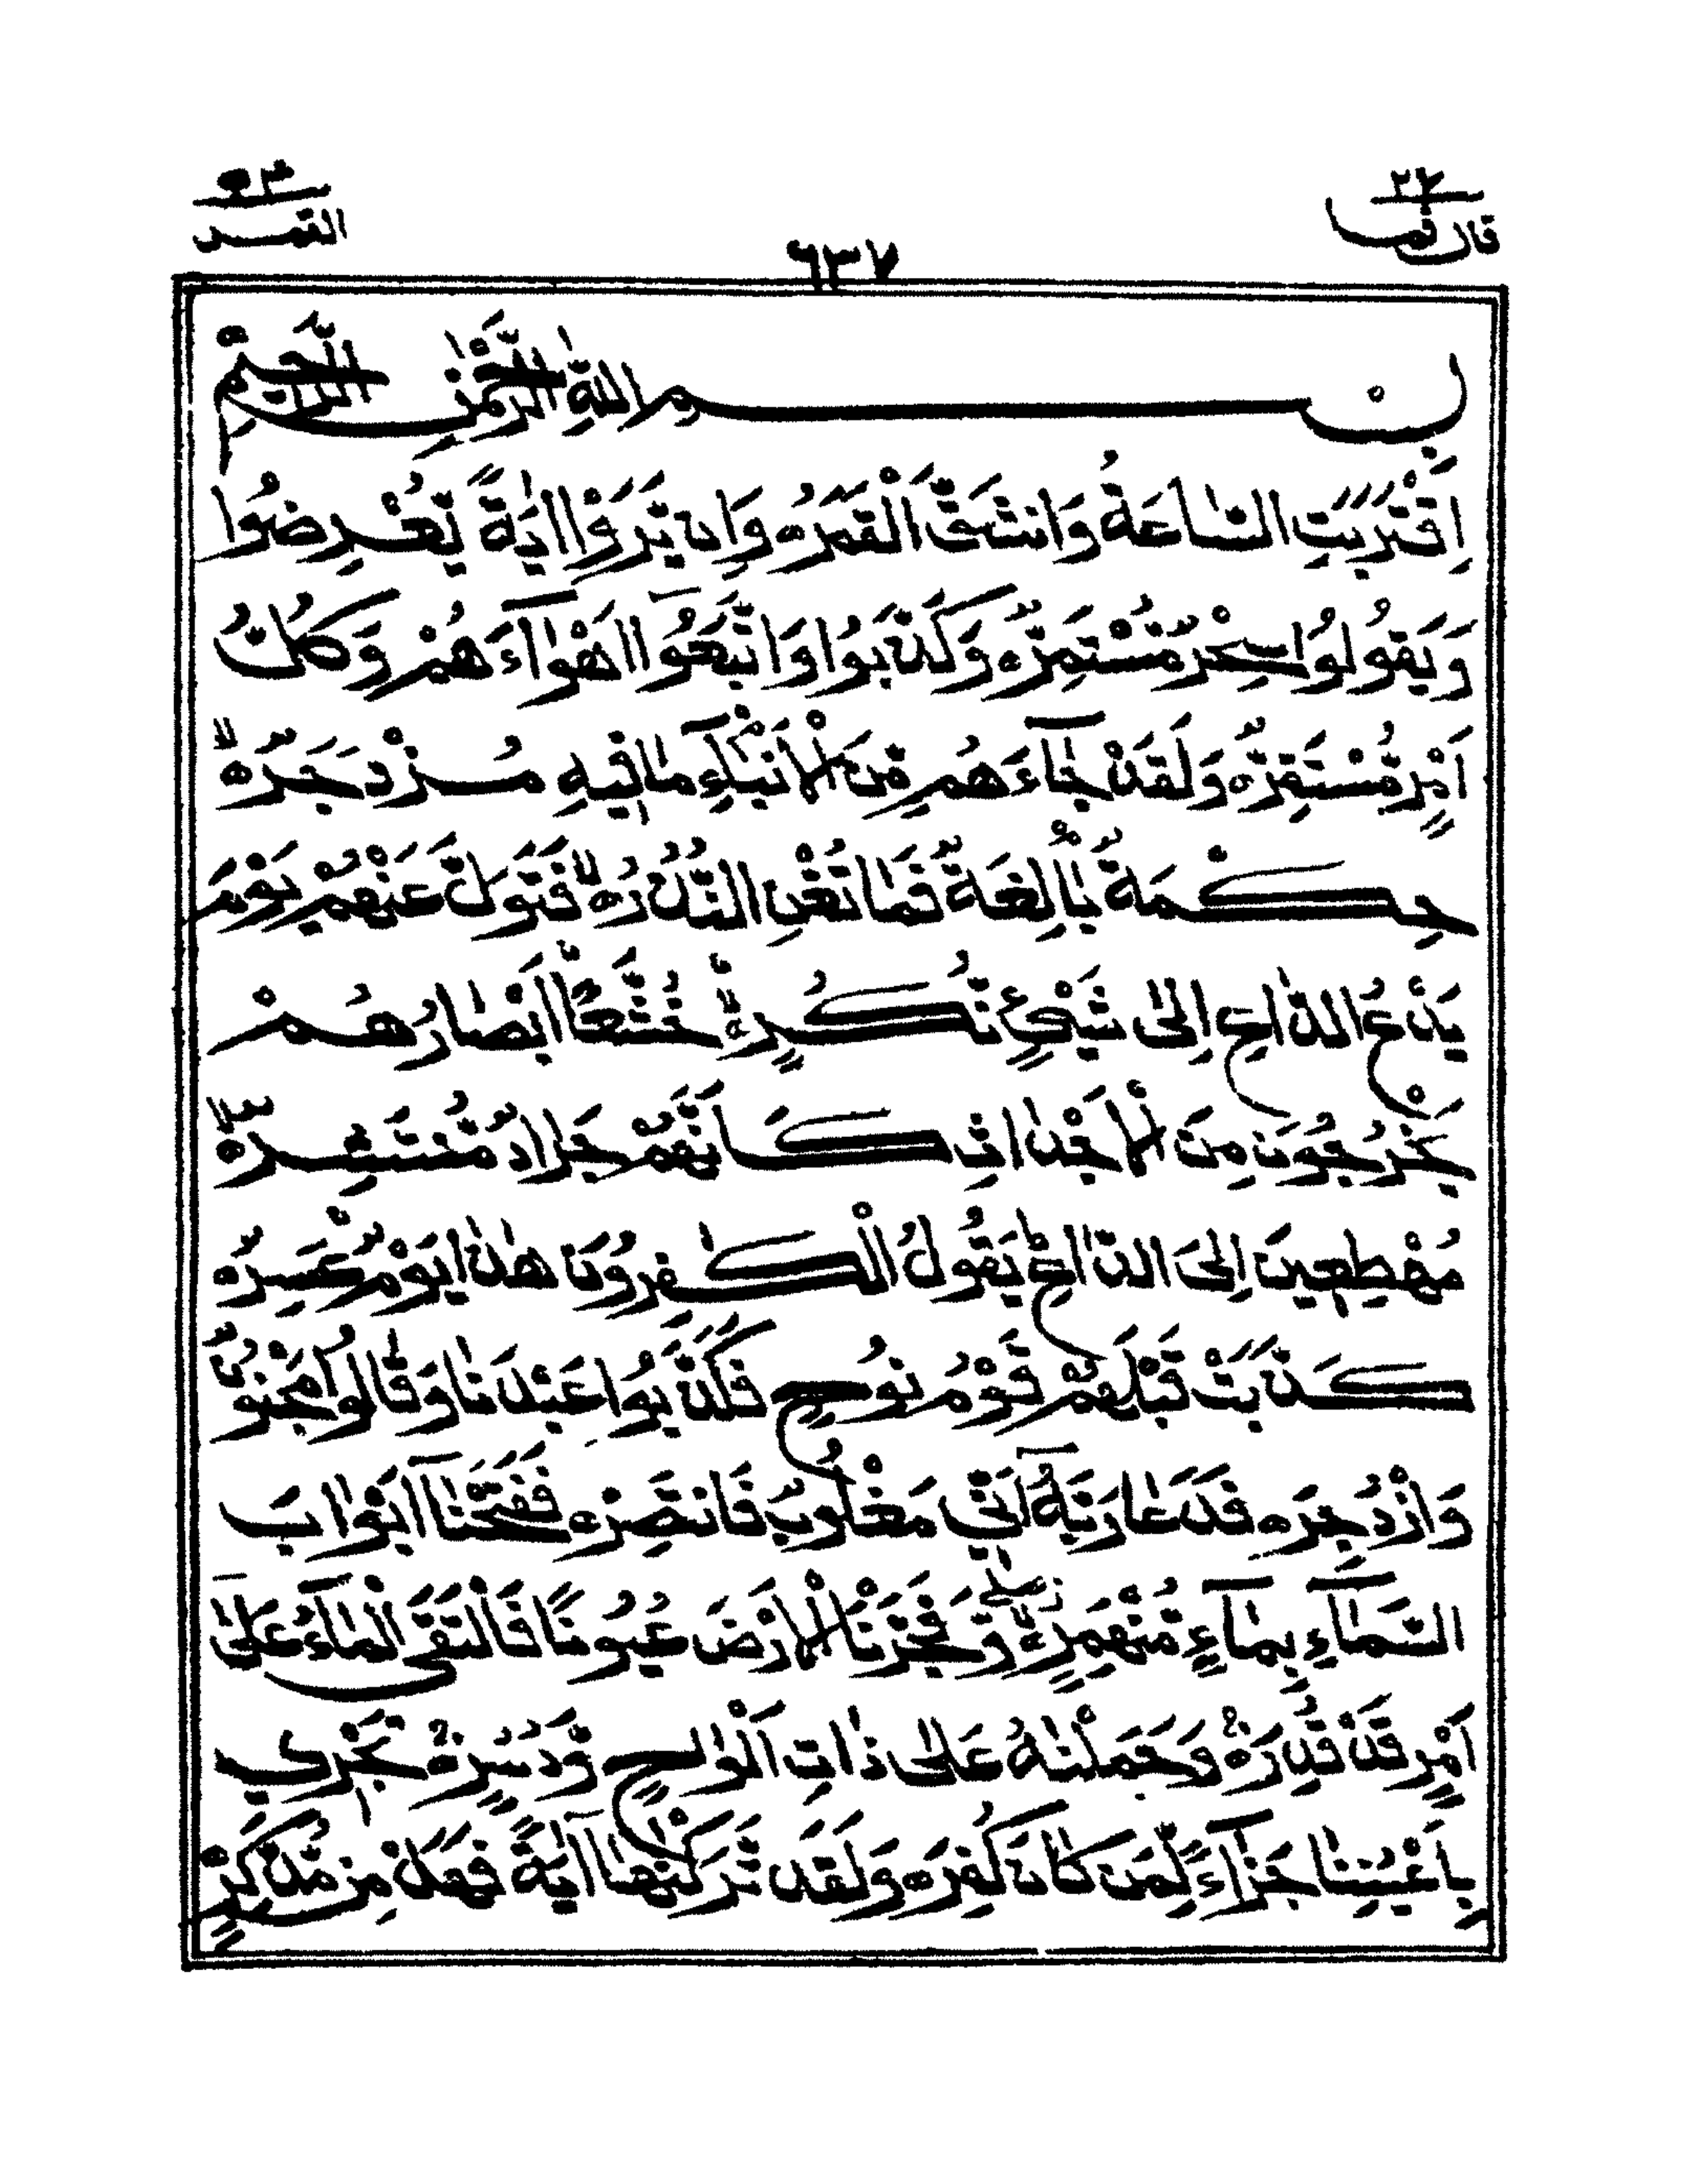 ٢٧
قال فما
٥٤
القمر
٦٣٧
بِسْمِ اللّٰهِ الرَّحْمٰنِ الرَّحِيْمِ
اِقْتَرَبَتِ السَّاعَةُ وَانْشَقَّ الْقَمَرُ ه وَاِنْ يَّرَوْا اٰيَةً يُّعْرِضُوْا
وَيَقُوْلُوْا سِحْرٌ مُّسْتَمِرٌّ ه وَكَذَّبُوْا وَاتَّبَعُوْآ اَهْوَآءَهُمْ وَكُلُّ
اَمْرٍ مُّسْتَقِرٌّ ه وَلَقَدْ جَآءَهُمْ مِّنَ الْاَنْبَآءِ مَا فِيْهِ مُزْدَجَرٌ ه
حِكْمَةٌ بَالِغَةٌ فَمَا تُغْنِ النُّذُرُ ه فَتَوَلَّ عَنْهُمْ يَوْمَ
يَدْعُ الدَّاعِ اِلٰى شَيْءٍ نُّكُرٍ ه خُشَّعًا اَبْصَارُهُمْ
يَخْرُجُوْنَ مِنَ الْاَجْدَاثِ كَاَنَّهُمْ جَرَادٌ مُّنْتَشِرٌ ه
مُهْطِعِيْنَ اِلَى الدَّاعِ يَقُوْلُ الْكٰفِرُوْنَ هٰذَا يَوْمٌ عَسِرٌ ه
كَذَّبَتْ قَبْلَهُمْ قَوْمُ نُوْحٍ فَكَذَّبُوْا عَبْدَنَا وَقَالُوْا مَجْنُوْنٌ
وَّازْدُجِرَ ه فَدَعَا رَبَّهٗٓ اَنِّيْ مَغْلُوْبٌ فَانْتَصِرْ ه فَفَتَحْنَآ اَبْوَابَ
السَّمَآءِ بِمَآءٍ مُّنْهَمِرٍ ه وَّفَجَّرْنَا الْاَرْضَ عُيُوْنًا فَالْتَقَى الْمَآءُ عَلٰى
اَمْرٍ قَدْ قُدِرَ ه وَحَمَلْنٰهُ عَلٰى ذَاتِ اَلْوَاحٍ وَّدُسُرٍ ه تَجْرِيْ
بِاَعْيُنِنَا جَزَآءً لِّمَنْ كَانَ كُفِرَ ه وَلَقَدْ تَّرَكْنٰهَآ اٰيَةً فَهَلْ مِنْ مُّدَّكِرٍ